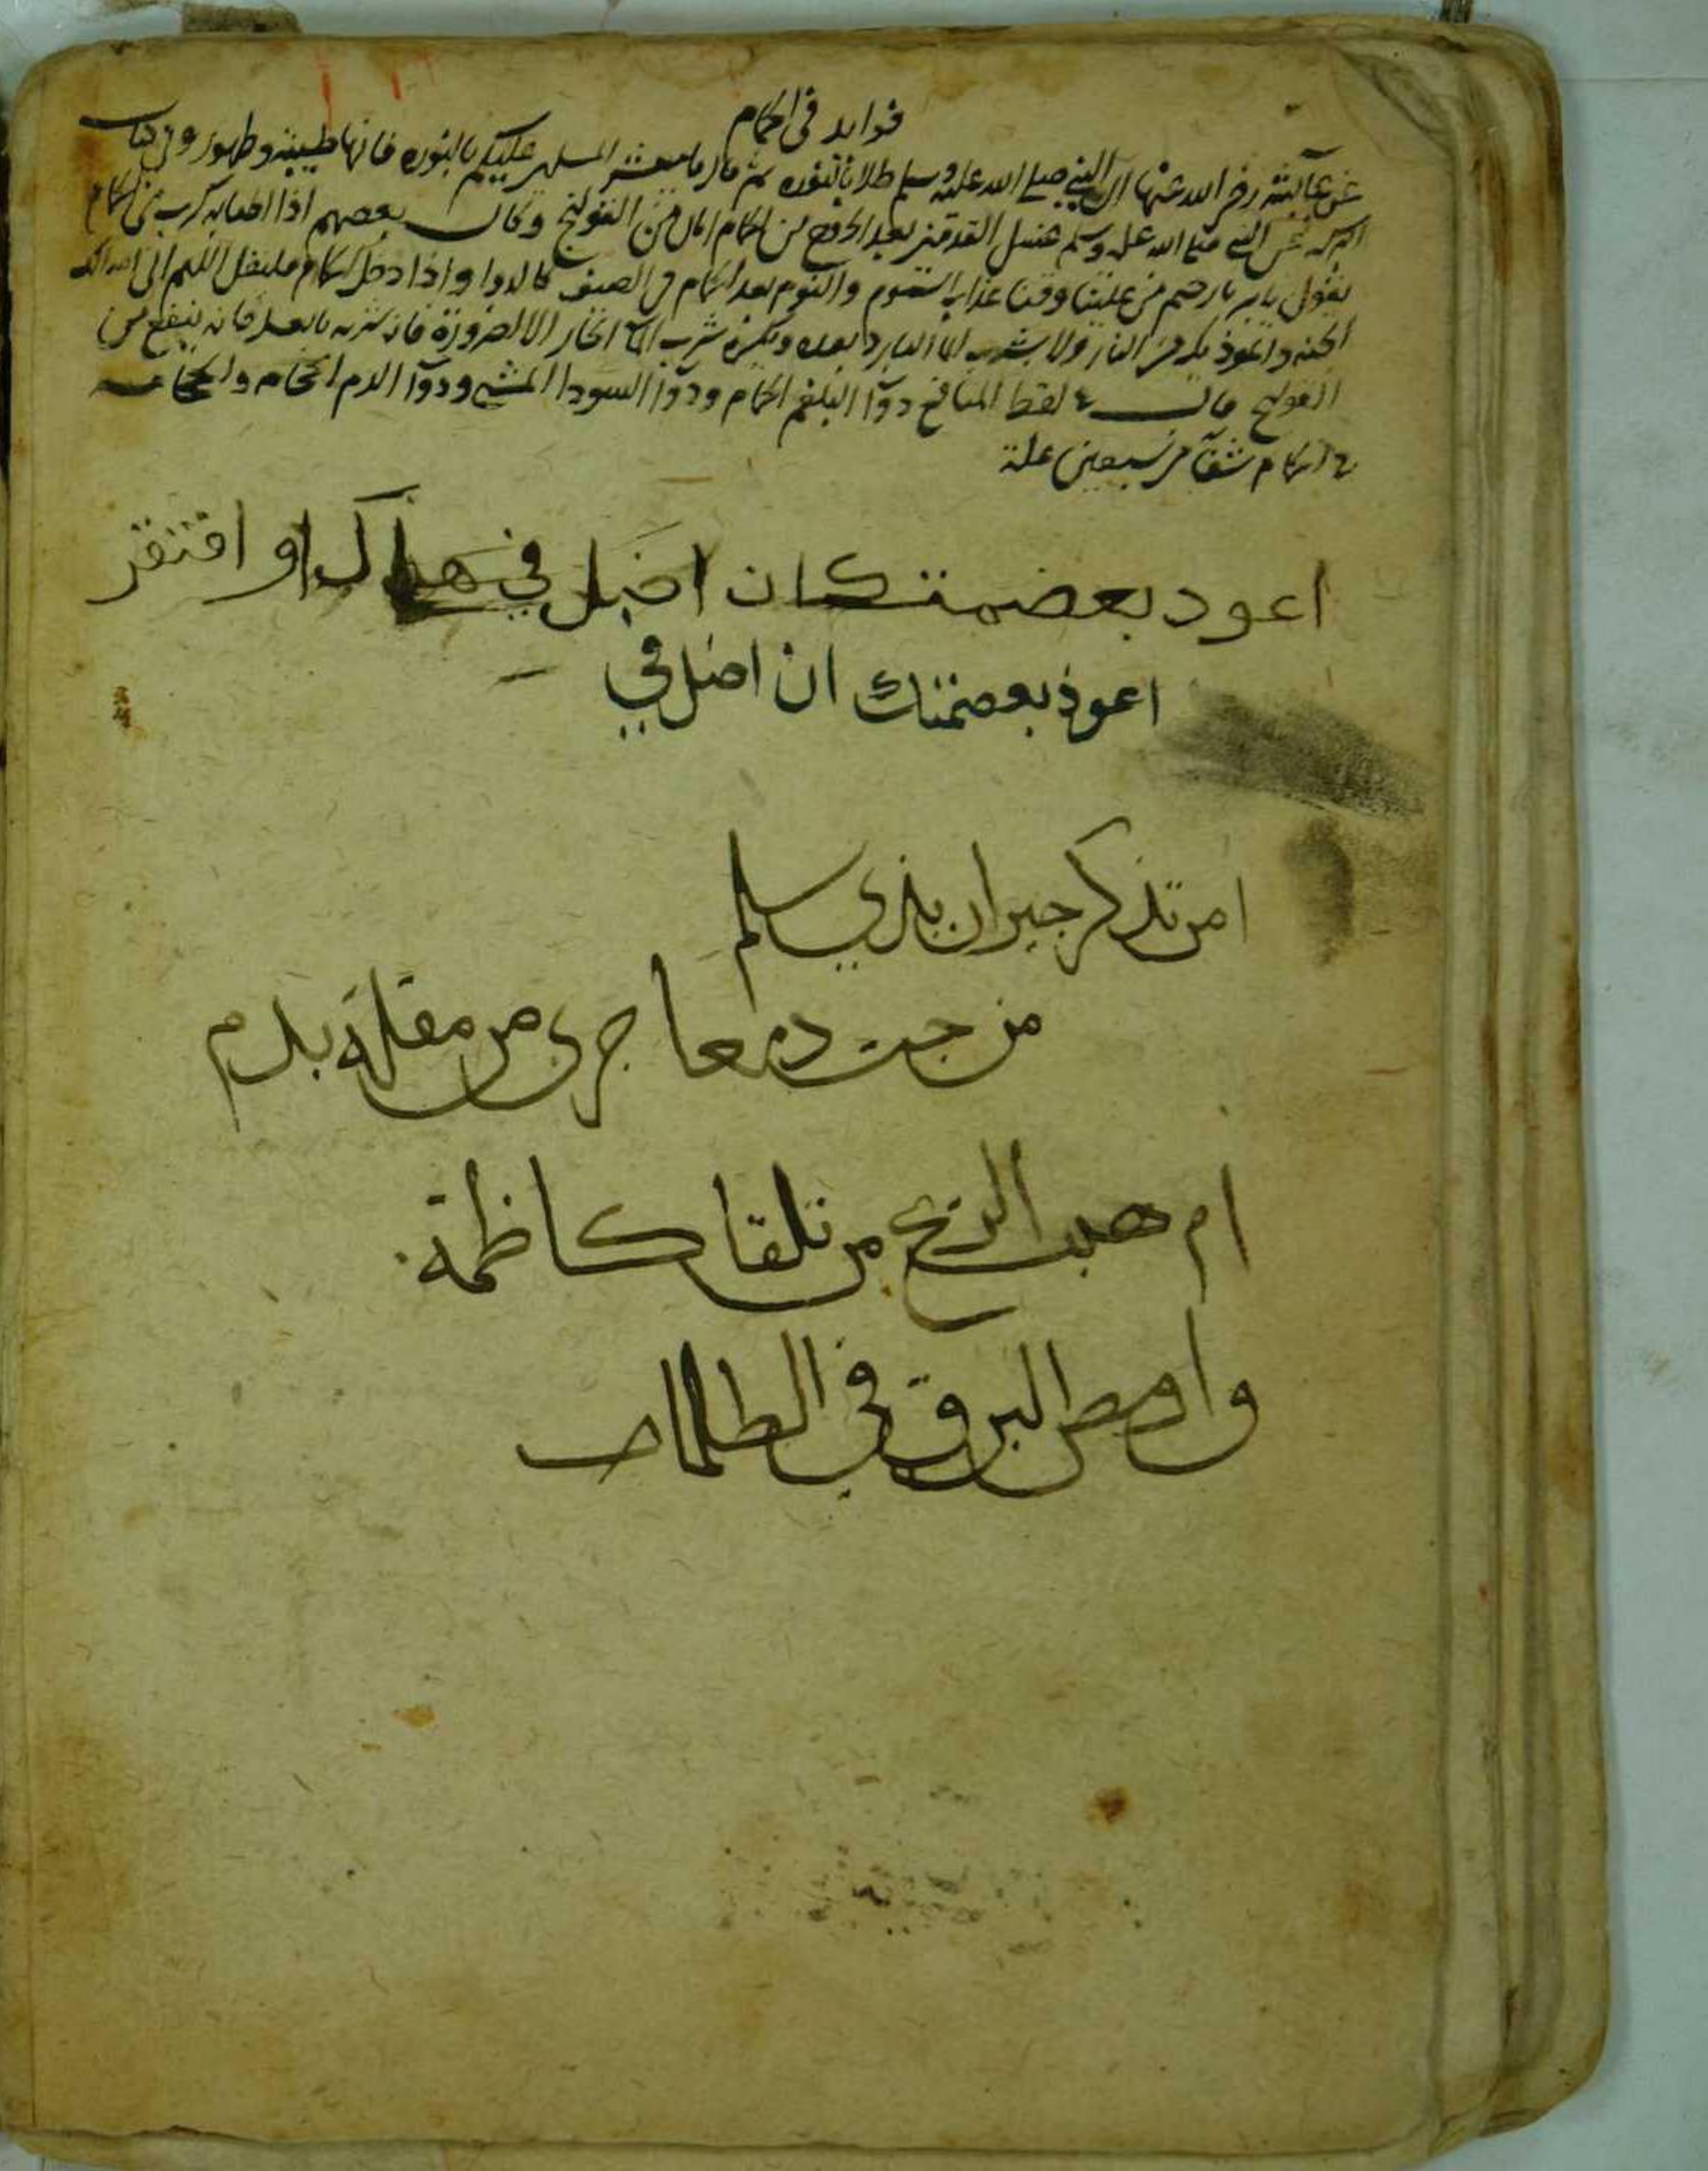 فوايد في الحمام
عن عآئشة رضى الله عنها ان النبي صلى الله عليه وسلم طلا بالنوره ثم قال يا معشر المسلمين عليكم بالنوره فانها طيبة وطهور وفى كتاب
البركه عن النبي صلى الله عليه وسلم غسل القدمين بعد الخروج من الحمام امان من القولنج وقال بعضهم اذا اصابه كرب في الحمام
يقول يا بر يا رحيم من علينا وقنا عذاب السموم والنوم بعد الحمام في الصيف كالدوا واذا دخل الحمام فليقل اللهم اني اسالك
الجنه واعوذ بك من النار ولا يشرب الما البارد بعده ويكره شرب المآ الحار الا لضرورة فان شربه بالعسل فانه ينفع من
القولنج قال في لقط المنافع دوآ البلغم الحمام ودوآ السودا المشي ودوآ الدم الحجامه
الحمام شفآ من سبعين علة
اعود بعضمتكان اضل في هداك او افتقر
اعوذ بعصمتك ان اضل في
امن تذكر جيران بذي سلم
مزجت دمعا جرى من مقلة بدم
ام هبت الريح من تلقا كاظمة
وامض البرق في الظلما